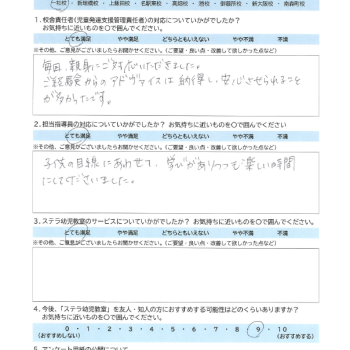 一社校 ・ 岩塚校 ・ 上飯田校 ・ 名駅東校 ・ 高畑校 ・ 池校 ・ 御器所校 ・ 新大阪校 ・ 南森町校
1. 校舎責任者(児童発達支援管理責任者)の対応についていかがでしたか?
お気持ちに近いものを○で囲んでください。
とても満足 やや満足 どちらともいえない やや不満 不満
※その他、ご意見がございましたらお聞かせください。(ご要望・良い点・改善して欲しかった点など)
毎回、親身にご対応いただきました。
ご経験からのアドヴァイスは納得し、安心させられること
が多かったです。
2. 担当指導員の対応についていかがでしたか? お気持ちに近いものを○で囲んでください
とても満足 やや満足 どちらともいえない やや不満 不満
※その他、ご意見がございましたらお聞かせください。(ご要望・良い点・改善して欲しかった点など)
子供の目線にあわせて、学びがありつつも楽しい時間
にしてくださいました。
3. ステラ幼児教室のサービスについていかがでしたか? お気持ちに近いものを○で囲んでください。
とても満足 やや満足 どちらともいえない やや不満 不満
※その他、ご意見がございましたらお聞かせください。(ご要望・良い点・改善して欲しかった点など)
4. 今後、「ステラ幼児教室」を友人・知人の方におすすめする可能性はどのくらいありますか?
お気持ちに近いものを○で囲んでください。
0 ・ 1 ・ 2 ・ 3 ・ 4 ・ 5 ・ 6 ・ 7 ・ 8 ・ 9 ・ 10
(おすすめしない) (おすすめする)
5. アンケート用紙の公開について